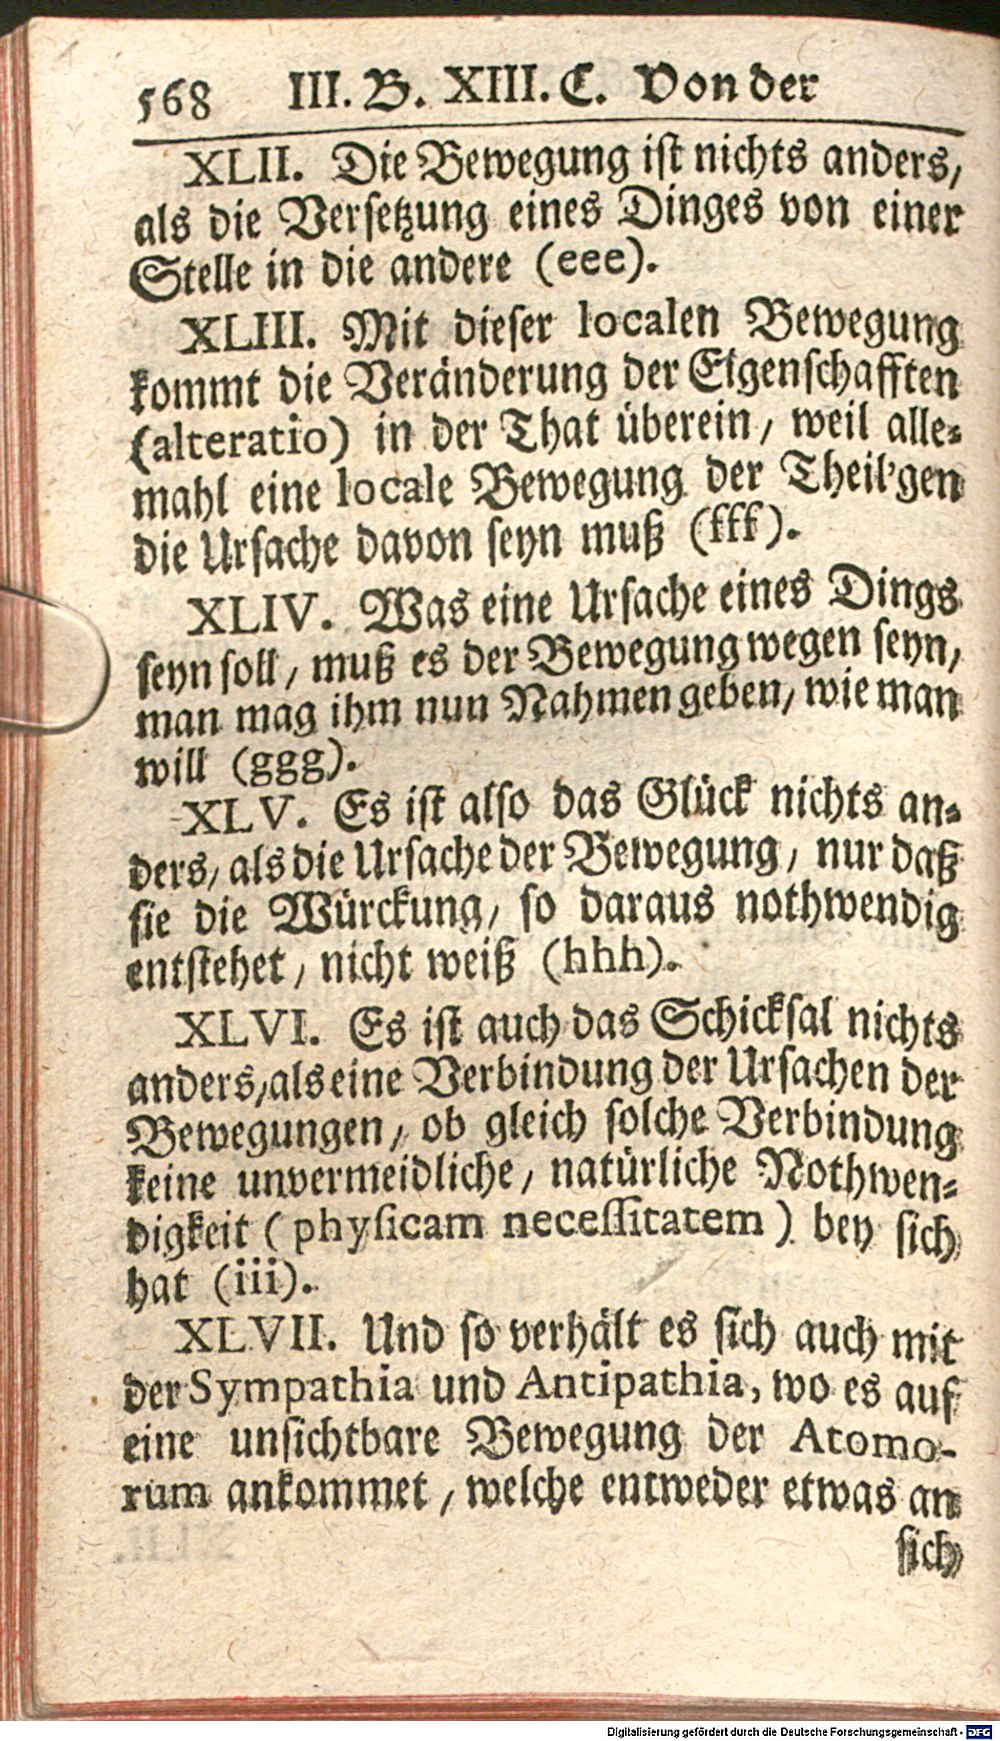 568 III. B. XIII. C. Von der
XLII. Die Bewegung ist nichts anders,
als die Versetzung eines Dinges von einer
Stelle in die andere (eee).
XLIII. Mit dieser localen Bewegung
kommt die Veränderung der Eigenschafften
(alteratio) in der That überein, weil alle-
mahl eine locale Bewegung der Theil'gen
die Ursache davon seyn muß (fff).
XLIV. Was eine Ursache eines Dings
seyn soll, muß es der Bewegung wegen seyn,
man mag ihm nun Nahmen geben, wie man
will (ggg).
XLV. Es ist also das Glück nichts an-
ders, als die Ursache der Bewegung, nur daß
sie die Würckung, so daraus nothwendig
entstehet, nicht weiß (hhh).
XLVI. Es ist auch das Schicksal nichts
anders, als eine Verbindung der Ursachen der
Bewegungen, ob gleich solche Verbindung
keine unvermeidliche, natürliche Nothwen-
digkeit (physicam necessitatem) bey sich
hat (iii).
XLVII. Und so verhält es sich auch mit
der Sympathia und Antipathia, wo es auf
eine unsichtbare Bewegung der Atomo-
rum ankommet, welche entweder etwas an
sich
Digitalisierung gefördert durch die Deutsche Forschungsgemeinschaft - DFG